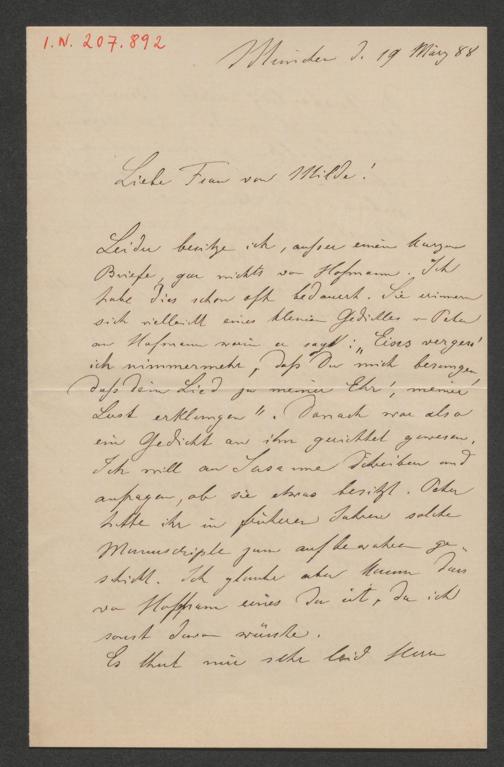 I.N. 207.892
München d. 19 März 88
Liebe Frau von Milde!
Leider besitze ich, außer einem kurzen
Briefe, gar nichts von Hofmann. Ich
habe dies schon oft bedauert. Sie erinnern
sich vielleicht eines kleinen Gedichtes v. Peter
an Hofmann worin er sagt: „Eines vergess'
ich nimmermehr, daß Du mich besungen,
daß dein Lied zu meiner Ehr', meiner
Lust erklungen". Danach war also
ein Gedicht an ihn gerichtet gewesen.
Ich will an Susanne schreiben und
anfragen, ob sie etwas besitzt. Peter
hatte ihr in früheren Jahren solche
Manuscripte zum aufbewahren ge-
schickt. Ich glaube aber kaum dass
von Hoffmann eines da ist, da ich
sonst davon wüsste.
Es thut mir sehr leid Herrn